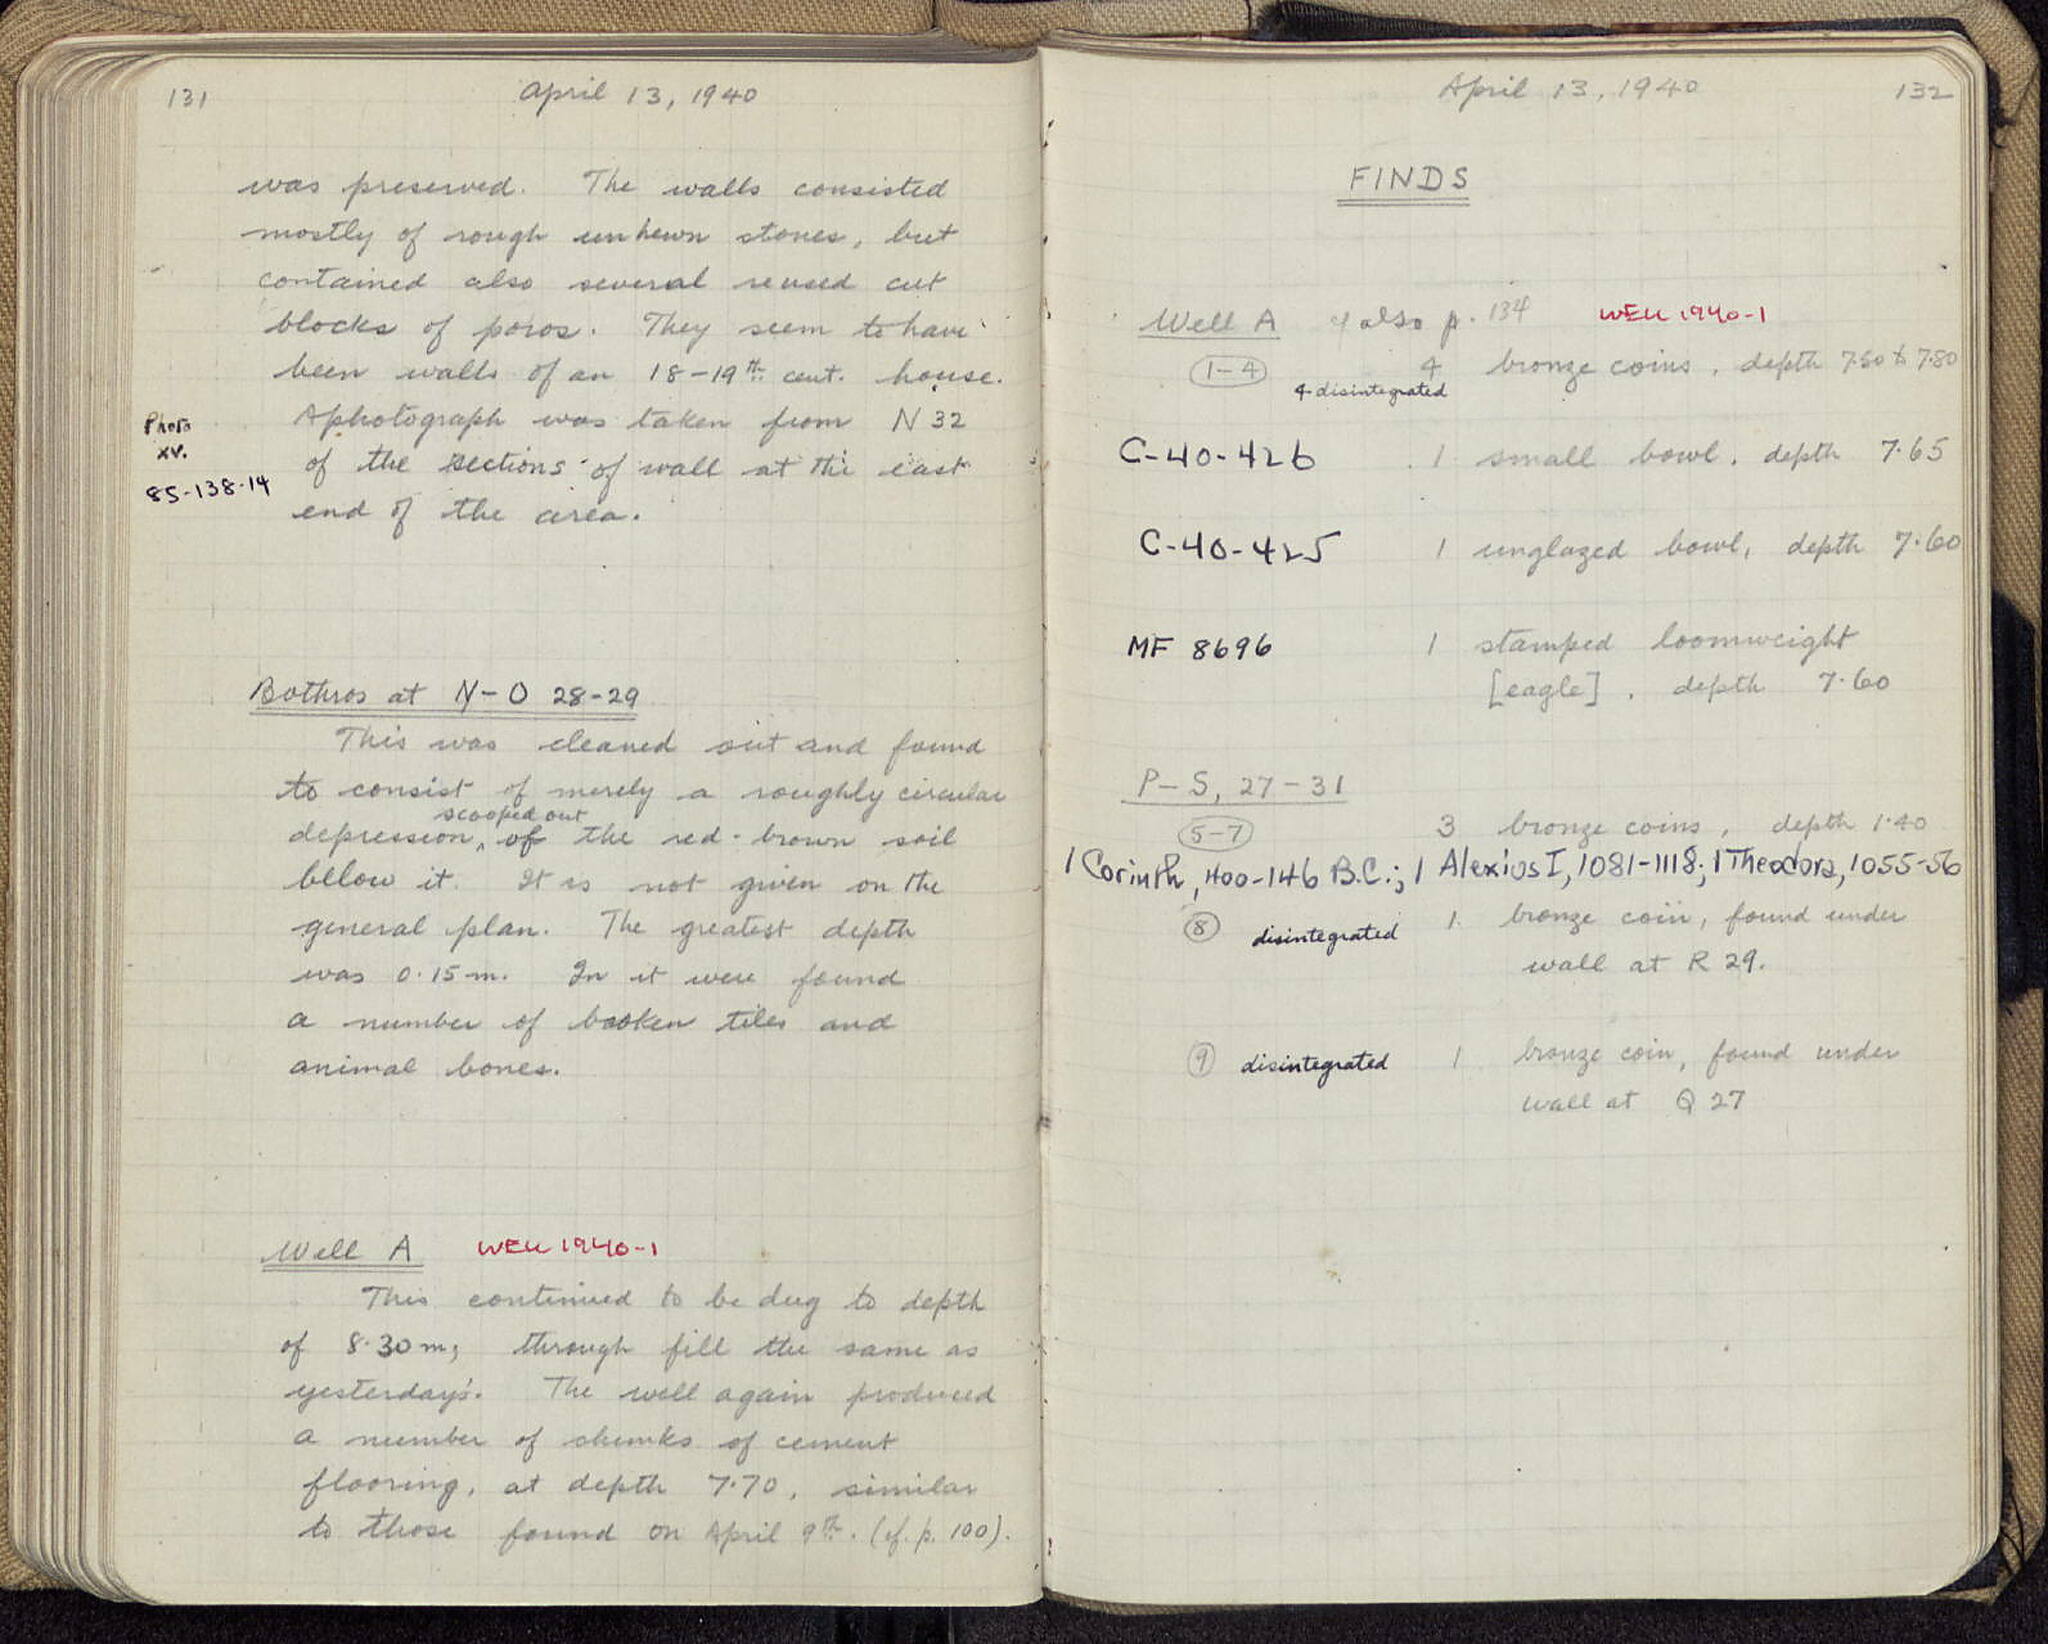 131
April 13, 1940
was preserved. The walls consisted
mostly of rough unhewn stones, but
contained also several reused cut
blocks of poros. They seem to have
been walls of an 18-19th cent. house.
A photograph was taken from N 32
of the sections of wall at the east
end of the area.
Photo
XV.
85-138-14
Bothros at N-O 28-29
This was cleaned out and found
to consist of merely a roughly circular
scooped out
depression, of the red-brown soil
below it. It is not given on the
general plan. The greatest depth
was 0.15 m. In it were found
a number of broken tiles and
animal bones.
Well A WELL 1940-1
This continued to be dug to depth
of 8.30 m, through fill the same as
yesterday's. The well again produced
a number of chunks of cement
flooring, at depth 7.70, similar
to those found on April 9th. (cf. p. 100).
April 13, 1940
132
FINDS
Well A cf also p. 134 WELL 1940-1
1-4 4 bronze coins, depth 7.50 to 7.80
4 disintegrated
C-40-426 1 small bowl, depth 7.65
C-40-425 1 unglazed bowl, depth 7.60
MF 8696 1 stamped loomweight
[eagle], depth 7.60
P-S, 27-31
5-7 3 bronze coins, depth 1.40
1 Corinth, 400-146 B.C.; 1 Alexius I, 1081-1118; 1 Theodora, 1055-56
8 disintegrated 1 bronze coin, found under
wall at R 29.
9 disintegrated 1 bronze coin, found under
wall at Q 27